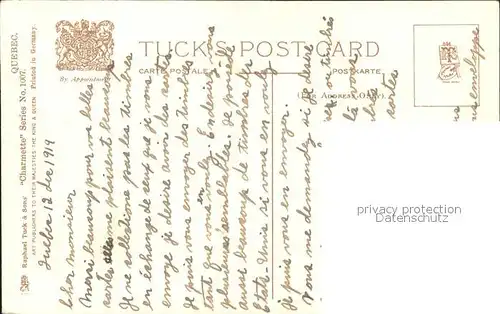 TUCK'S POST CARD
CARTE POSTALE
POSTKARTE
By Appointment
(FOR ADDRESS ONLY)
Raphael Tuck & Sons' "Charmette" Series No. 1007. QUEBEC.
ART PUBLISHERS TO THEIR MAJESTIES THE KING & QUEEN. Printed in Germany.
Quebec 12 dec 1919
Cher monsieur
Merci beaucoup pour vos belles
cartes elles me plaisent beaucoup
Je ne collectione pas les timbres
en échange de ceux que je vous
envoye je désire avoir des cartes
Je puis vous envoyer des timbres
tant que vous en voulez.
plusieurs semblables. Je possède
aussi beaucoup de timbres des
Etats-Unis si vous en voulez
je puis vous en envoyer.
Vous me demandez si je désire
timbrés
à la
cartes
sous enveloppe
privates Musterbild
DARANSA